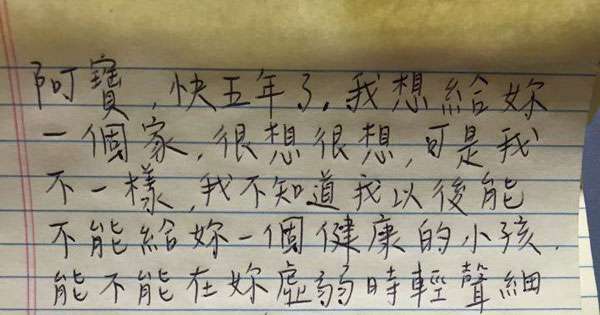 阿寶，快五年了。我想給妳
一個家，很想很想，可是我
不一樣，我不知道我以後能
不能給妳一個健康的小孩，
能不能在妳虛弱時輕聲細